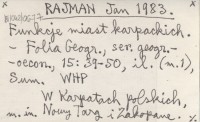 RAJMAN Jan 1983.
Funkcje miast karpackich.
- Folia Geogr., ser. geogr.-
-oecon., 15: 39-50, il. (m. 1),
Sum. WHP
W Karpatach polskich,
m. in. Nowy Targ i Zakopane. %